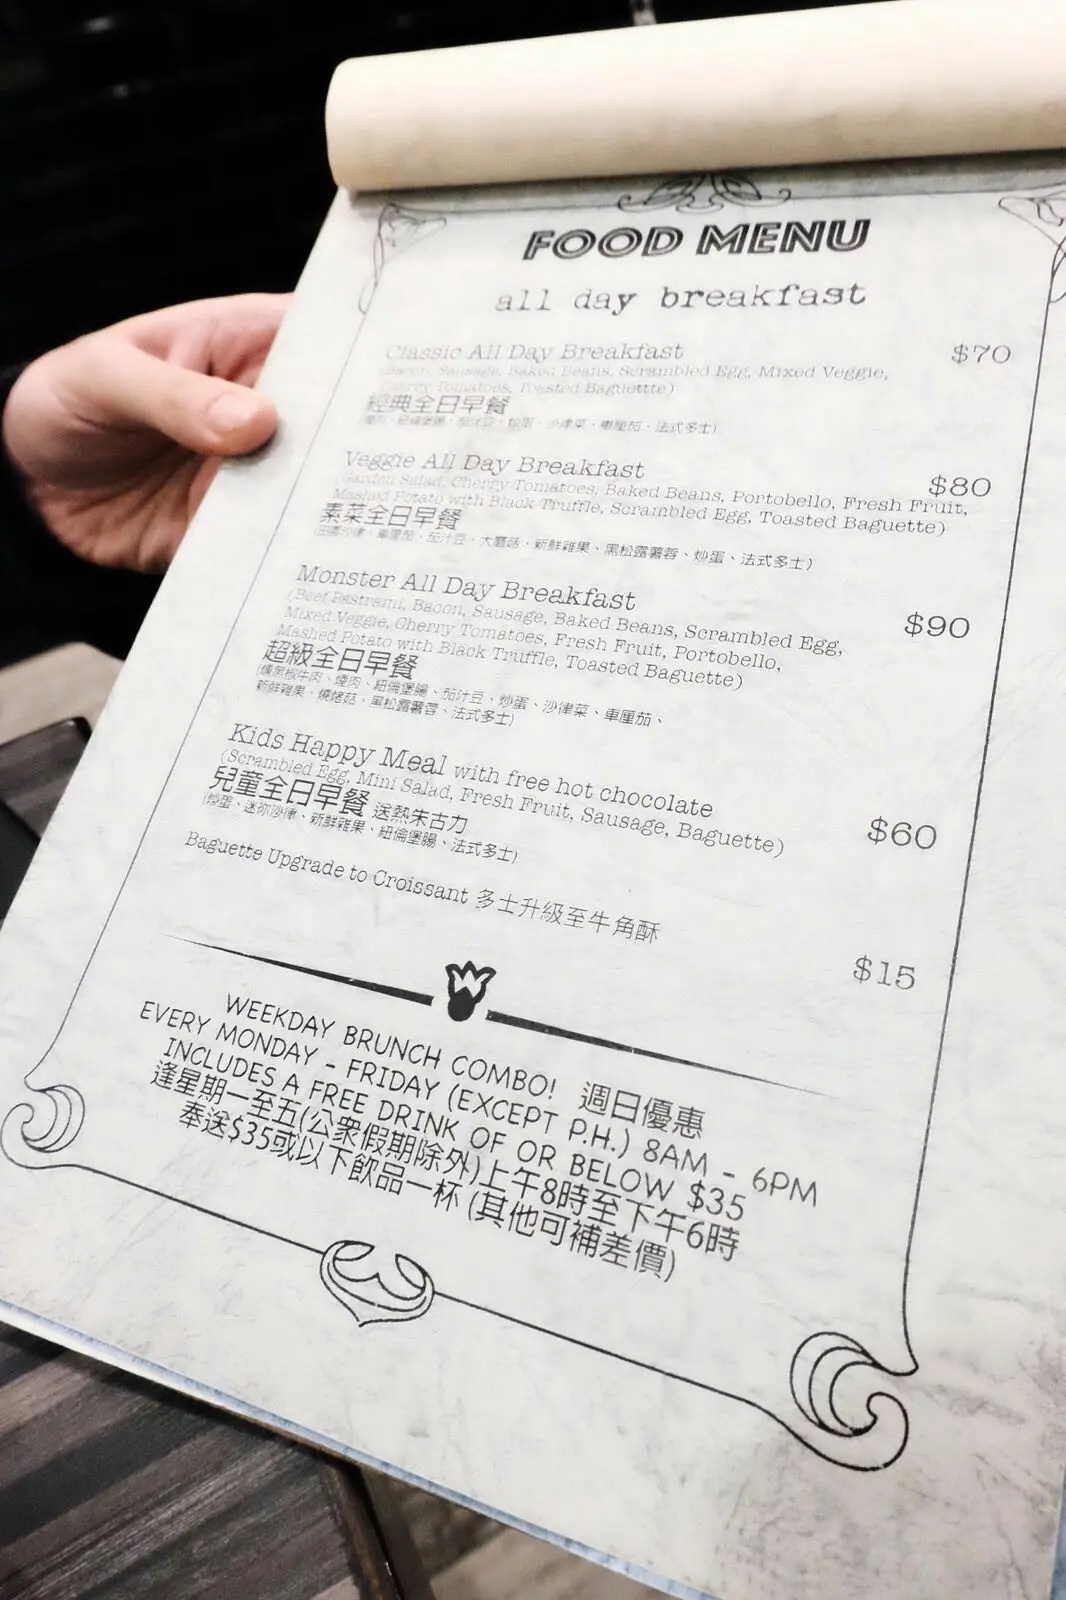 FOOD MENU
all day breakfast
Classic All Day Breakfast $70
(Bacon, Sausage, Baked Beans, Scrambled Egg, Mixed Veggie,
Cherry Tomatoes, Toasted Baguettte)
經典全日早餐
(煙肉、紐倫堡腸、茄汁豆、炒蛋、沙律菜、車厘茄、法式多士)
Veggie All Day Breakfast $80
(Garden Salad, Cherry Tomatoes, Baked Beans, Portobello, Fresh Fruit,
Mashed Potato with Black Truffle, Scrambled Egg, Toasted Baguette)
素菜全日早餐
(田園沙律、車厘茄、茄汁豆、大蘑菇、新鮮雜果、黑松露薯蓉、炒蛋、法式多士)
Monster All Day Breakfast $90
(Beef Pastrami, Bacon, Sausage, Baked Beans, Scrambled Egg,
Mixed Veggie, Cherry Tomatoes, Fresh Fruit, Portobello,
Mashed Potato with Black Truffle, Toasted Baguette)
超級全日早餐
(燻黑椒牛肉、煙肉、紐倫堡腸、茄汁豆、炒蛋、沙律菜、車厘茄、
新鮮雜果、燒烤菇、黑松露薯蓉、法式多士)
Kids Happy Meal with free hot chocolate $60
(Scrambled Egg, Mini Salad, Fresh Fruit, Sausage, Baguette)
兒童全日早餐 送熱朱古力
(炒蛋、迷你沙律、新鮮雜果、紐倫堡腸、法式多士)
Baguette Upgrade to Croissant 多士升級至牛角酥 $15
WEEKDAY BRUNCH COMBO! 週日優惠
EVERY MONDAY - FRIDAY (EXCEPT P.H.) 8AM - 6PM
INCLUDES A FREE DRINK OF OR BELOW $35
逢星期一至五(公眾假期除外)上午8時至下午6時
奉送$35或以下飲品一杯 (其他可補差價)